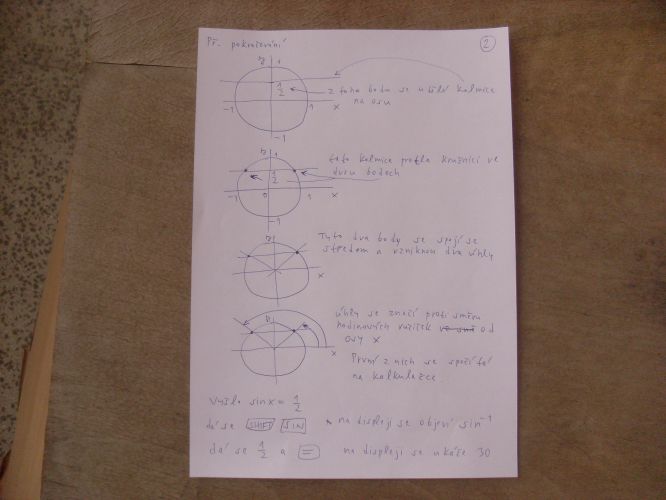 Př. pokračování
2
y
1
1/2
z toho bodu se udělá kolmice
na osu
-1
1
x
-1
y
1
tato kolmice protla kružnici ve
dvou bodech
1/2
-1
0
1
x
-1
y
Tyto dva body se spojí se
středem a vzniknou dva úhly
x
y
úhly se značí proti směru
hodinových ručiček ve smě od
osy x
x
První z nich se spočítá
na kalkulačce
Vyšlo sin x = 1/2
dá se SHIFT SIN na displeji se objeví sin⁻¹
dá se 1/2 a = na displeji se ukáže 30